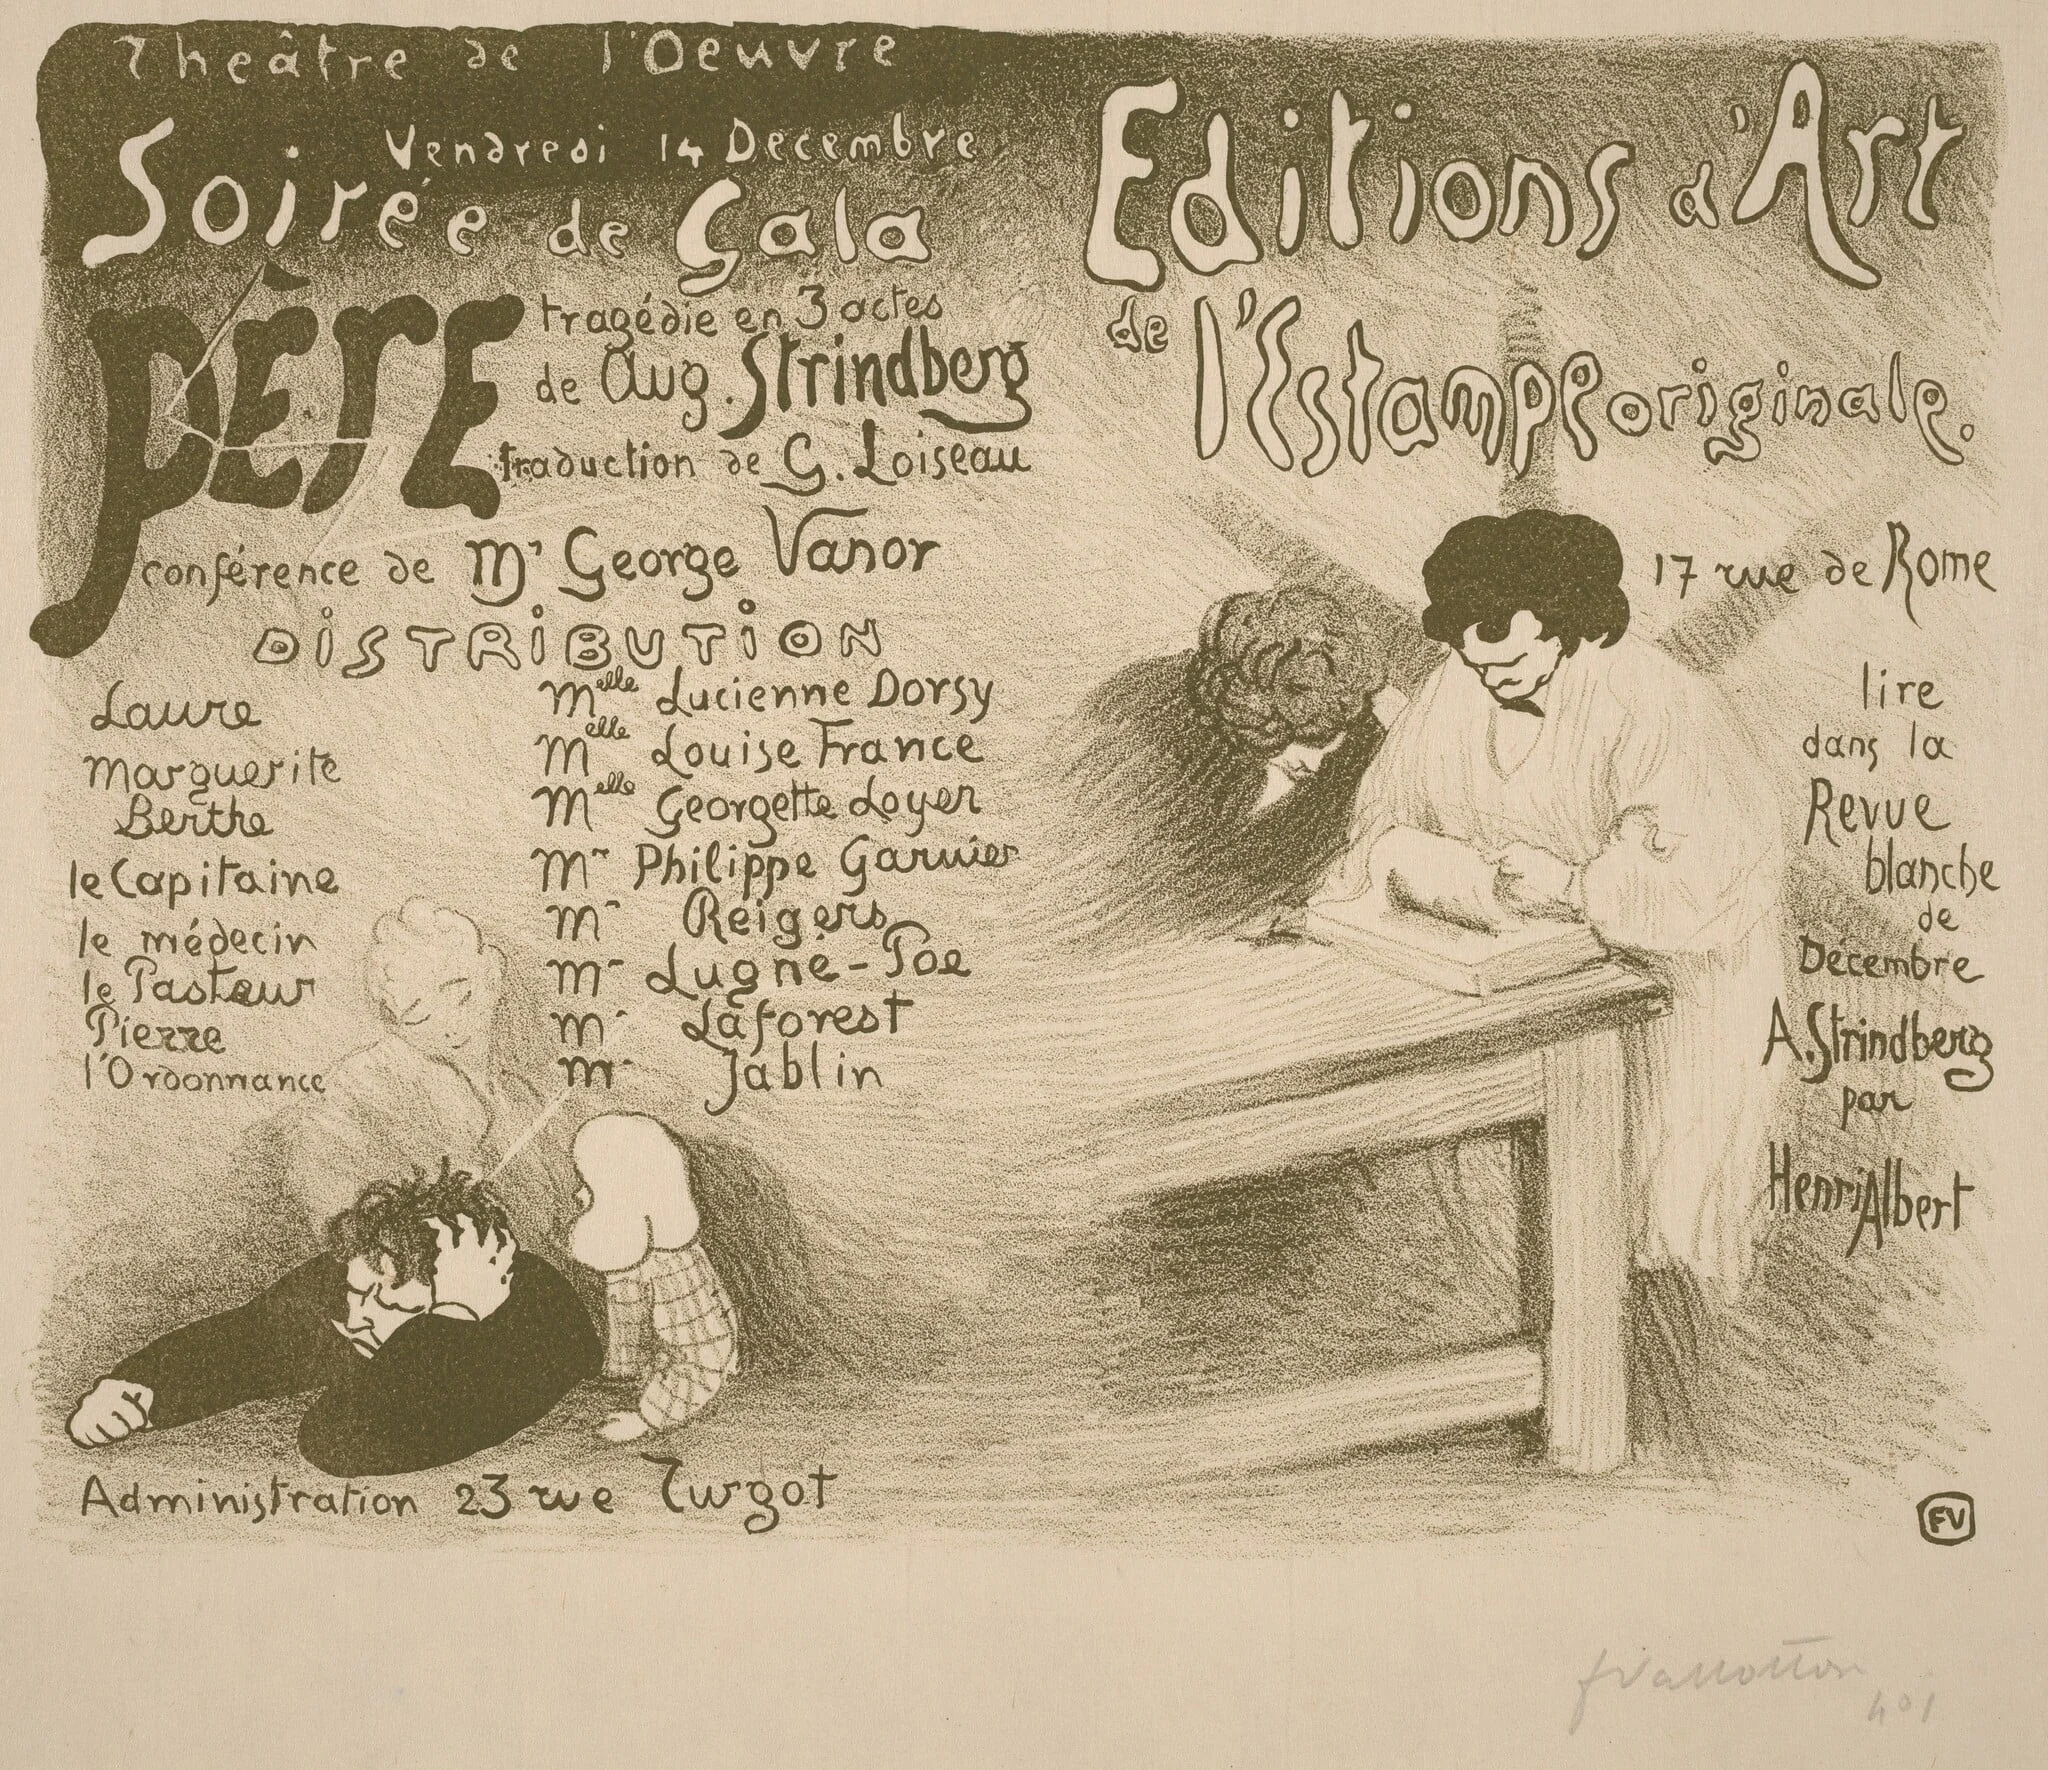 Théâtre de l'Oeuvre
Vendredi 14 Decembre
Soirée de Gala
PÈRE
tragédie en 3 actes
de Aug. Strindberg
traduction de G. Loiseau
conférence de Mr George Vanor
DISTRIBUTION
Laure Melle Lucienne Dorsy
Marguerite Melle Louise France
Berthe Melle Georgette Loyer
le Capitaine Mr Philippe Garnier
le médecin Mr Reigers
le Pasteur Mr Lugné-Poe
Pierre Mr Laforest
l'Ordonnance Mr Jablin
Administration 23 rue Turgot
Editions d'Art
de l'Estampe originale.
17 rue de Rome
lire
dans la
Revue
blanche
de
Décembre
A. Strindberg
par
Henri Albert
FV
f Vallotton
no 1